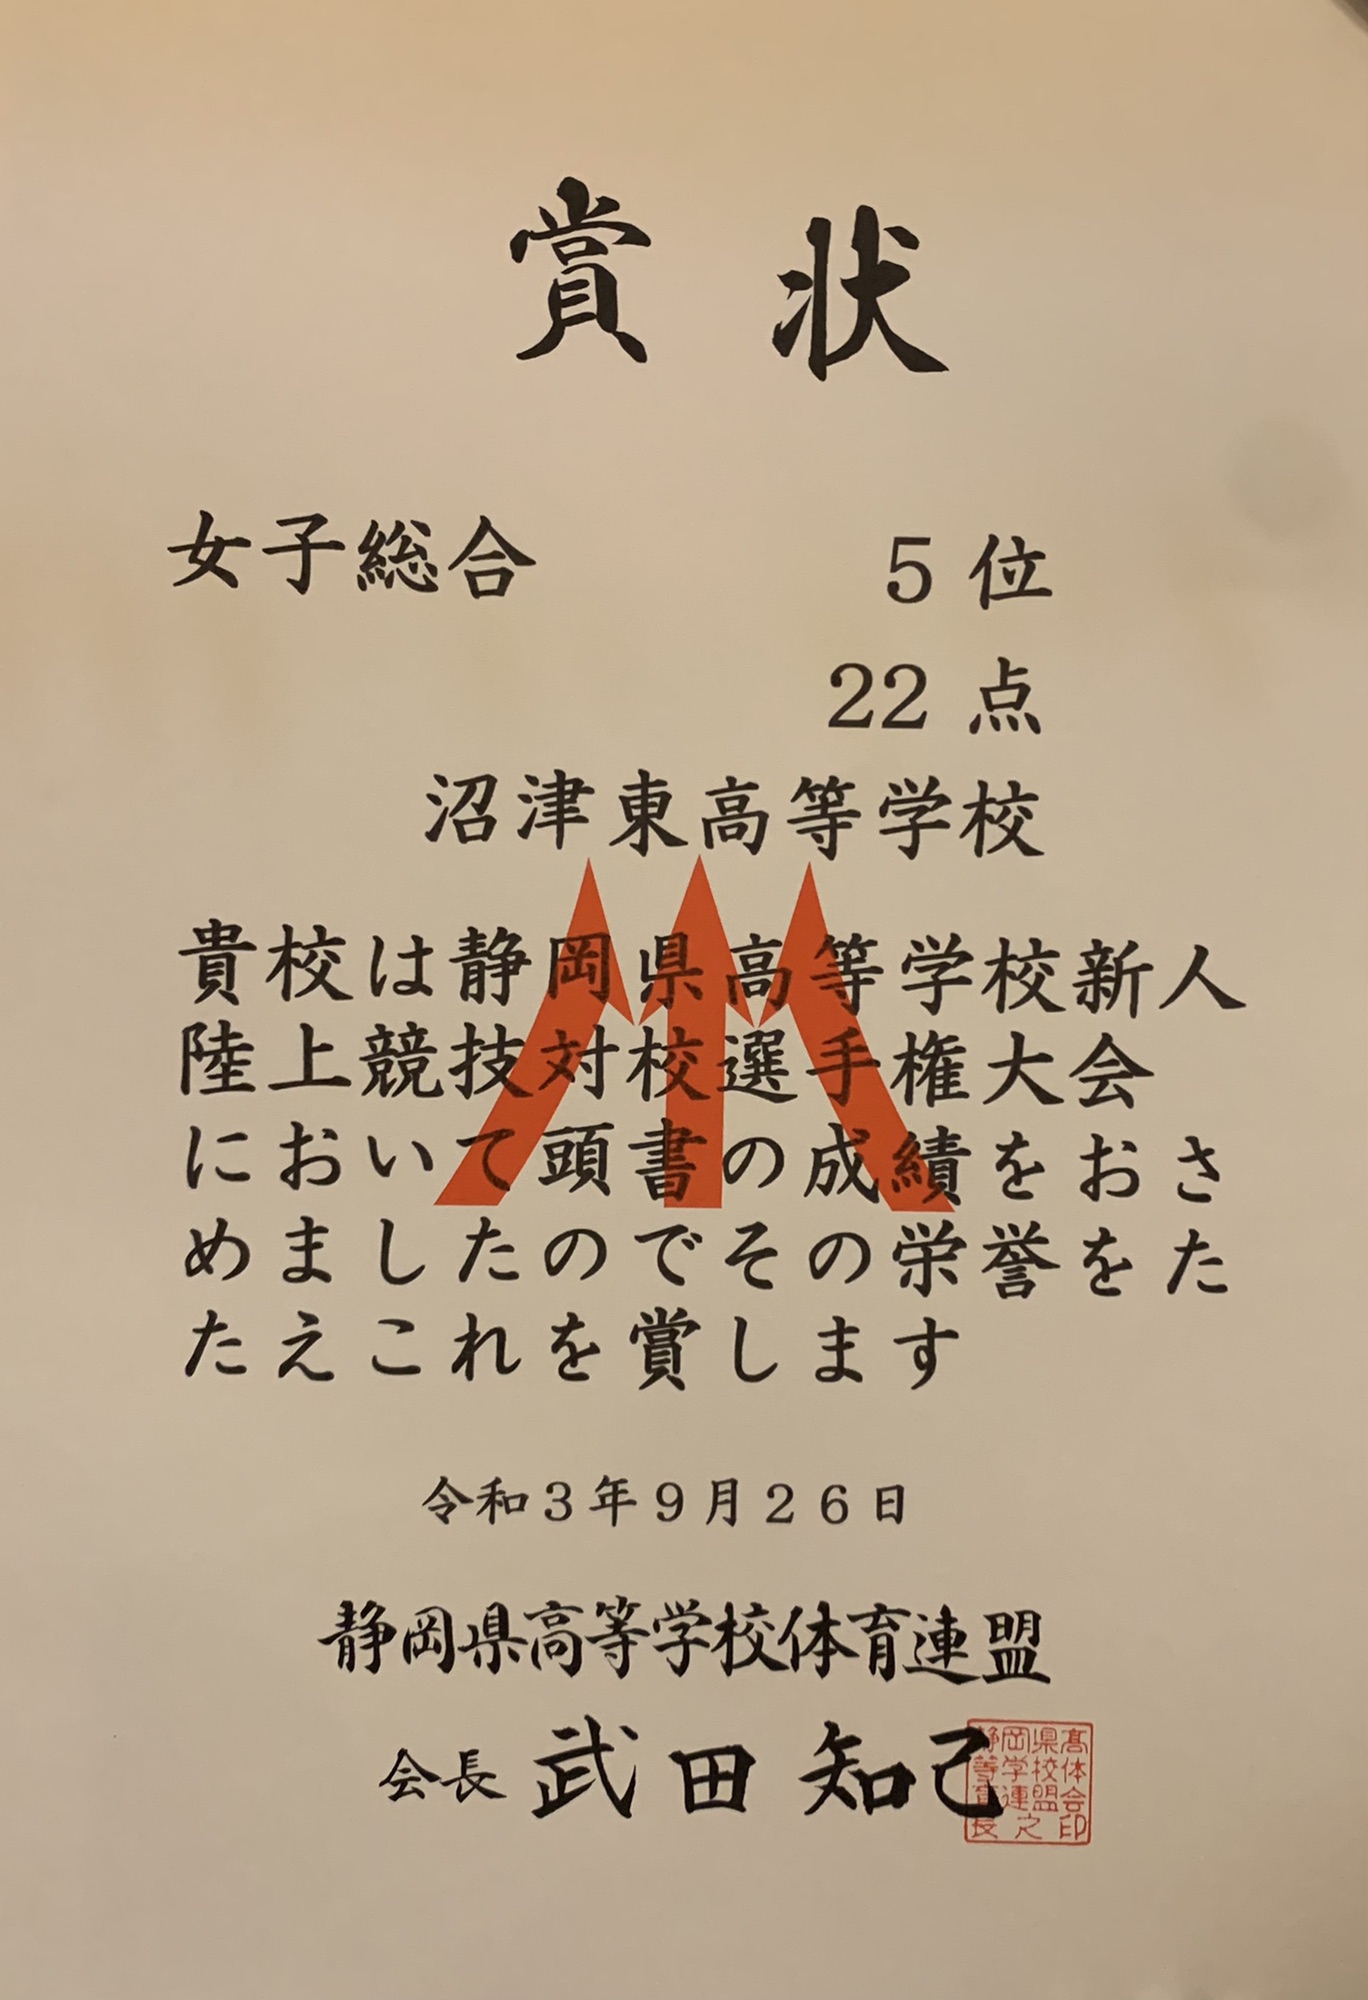 賞状
女子総合 5位
22点
沼津東高等学校
貴校は静岡県高等学校新人
陸上競技対校選手権大会
において頭書の成績をおさ
めましたのでその栄誉をた
たえこれを賞します
令和3年9月26日
静岡県高等学校体育連盟
会長 武田知己
静岡県高
等学校体
育連盟会
長之印